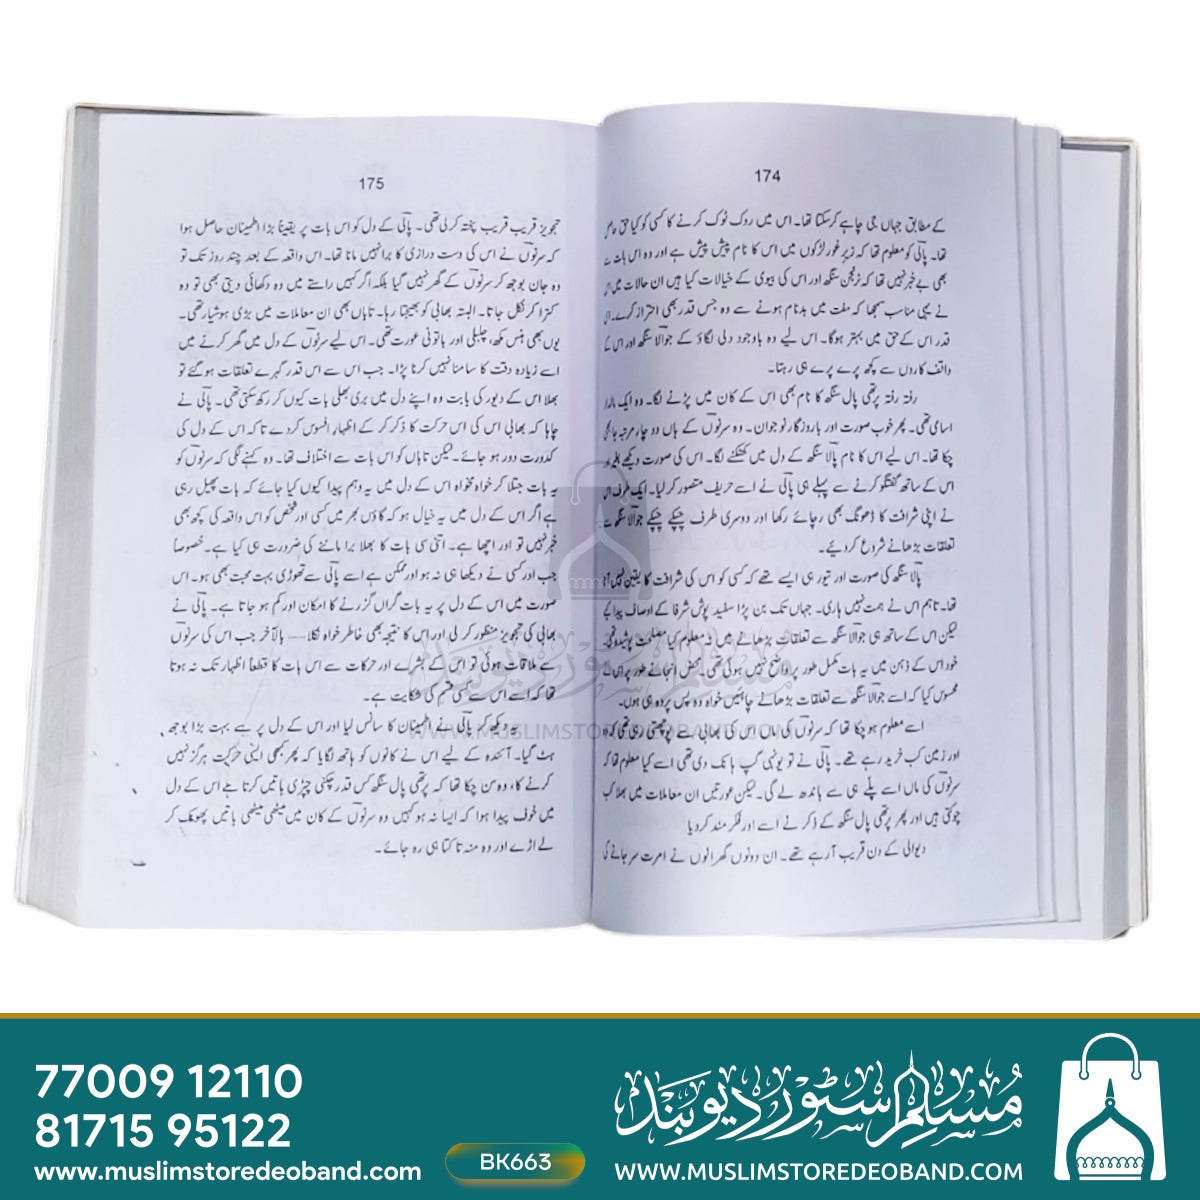 174
کے مطابق جہاں جی چاہے کر سکتا تھا۔ اس میں روک ٹوک کرنے کا کسی کو کیا حق حاصل
تھا۔ پالی کو معلوم تھا کہ زیر غور لڑکوں میں اس کا نام پیش پیش ہے اور وہ اس بات سے
بھی بے خبر نہیں تھا کہ نرنجن سنگھ اور اس کی بیوی کے خیالات کیا ہیں ان حالات میں اس
نے یہی مناسب سمجھا کہ مفت میں بدنام ہونے سے وہ جس قدر بھی احتراز کرے۔ اسی
قدر اس کے حق میں بہتر ہوگا۔ اس لیے وہ باوجود دلی لگاؤ کے جوالا سنگھ اور اس کے
واقف کاروں سے کچھ پرے پرے ہی رہتا۔
رفتہ رفتہ پرتھی پال سنگھ کا نام بھی اس کے کان میں پڑنے لگا۔ وہ ایک مالدار
اسامی تھی۔ پھر خوب صورت اور باروزگار نوجوان۔ وہ سرنوں کے ہاں دو چار مرتبہ جا بھی
چکا تھا۔ اس لیے اس کا نام پالا سنگھ کے دل میں کھٹکنے لگا۔ اس کی صورت دیکھے بغیر اور
اس کے ساتھ گفتگو کرنے سے پہلے ہی پالی نے اسے حریف متصور کر لیا۔ ایک طرف اس
نے اپنی شرافت کا ڈھونگ بھی رچائے رکھا اور دوسری طرف چپکے چپکے جوالا سنگھ سے
تعلقات بڑھانے شروع کر دیئے۔
پالا سنگھ کی صورت اور تیور ہی ایسے تھے کہ کسی کو اس کی شرافت کا یقین نہیں آتا
تھا۔ تاہم اس نے ہمت نہیں ہاری۔ جہاں تک بن پڑا سفید پوش شرفا کے اوصاف پیدا کیے
لیکن اس کے ساتھ ہی جوالا سنگھ سے تعلقات بڑھانے میں نہ معلوم کیا مصلحت پوشیدہ تھی۔
خود اس کے ذہن میں یہ بات مکمل طور پر واضح نہیں ہوئی تھی۔ محض انجانے طور پر اس نے
محسوس کیا کہ اسے جوالا سنگھ سے تعلقات بڑھانے چاہئیں خواہ وہ پس پردہ ہی ہوں۔
اسے معلوم ہو چکا تھا کہ سرنوں کی ماں اس کی بھابی سے پوچھتی رہی تھی کہ وہ
اور زمین کب خرید رہے تھے۔ پالی نے تو یونہی گپ ہانک دی تھی اسے کیا معلوم تھا کہ
سرنوں کی ماں اسے پلے ہی سے باندھ لے گی۔ لیکن عورتیں ان معاملات میں بھلا کب
چوکتی ہیں اور پھر پرتھی پال سنگھ کے ذکر نے اسے اور فکر مند کر دیا
دیوالی کے دن قریب آ رہے تھے۔ ان دونوں گھرانوں نے امرت سر جانے کی
175
تجویز قریب قریب پختہ کر لی تھی۔ پالی کے دل کو اس بات پر یقیناً بڑا اطمینان حاصل ہوا
کہ سرنوں نے اس کی دست درازی کا برا نہیں مانا تھا۔ اس واقعہ کے بعد چند روز تک تو
وہ جان بوجھ کر سرنوں کے گھر نہیں گیا بلکہ اگر کہیں راستے میں وہ دکھائی دیتی بھی تو وہ
کترا کر نکل جاتا۔ البتہ بھابی کو بھیجتا رہا۔ تاباں بھی ان معاملات میں بڑی ہوشیار تھی۔
یوں بھی ہنس مکھ، چلبلی اور باتونی عورت تھی۔ اس لیے سرنوں کے دل میں گھر کرنے میں
اسے زیادہ دقت کا سامنا نہیں کرنا پڑا۔ جب اس سے اس قدر گہرے تعلقات ہو گئے تو
بھلا اس کے دیور کی بابت وہ اپنے دل میں بری بھلی بات کیوں کر رکھ سکتی تھی۔ پالی نے
چاہا کہ بھابی اس کی اس حرکت کا ذکر کر کے اظہار افسوس کر دے تا کہ اس کے دل کی
کدورت دور ہو جائے۔ لیکن تاباں کو اس بات سے اختلاف تھا۔ وہ کہنے لگی کہ سرنوں کو
یہ بات جتلا کر خواہ مخواہ اس کے دل میں یہ وہم پیدا کیوں کیا جائے کہ بات پھیل رہی
ہے اگر اس کے دل میں یہ خیال ہو کہ گاؤں بھر میں کسی اور شخص کو اس واقعہ کی کچھ بھی
خبر نہیں تو اور اچھا ہے۔ اتنی سی بات کا بھلا برا ماننے کی ضرورت ہی کیا ہے۔ خصوصاً
جب اور کسی نے دیکھا ہی نہ ہو اور ممکن ہے اسے پالی سے تھوڑی بہت محبت بھی ہو۔ اس
صورت میں اس کے دل پر یہ بات گراں گزرنے کا امکان اور کم ہو جاتا ہے۔ پالی نے
بھابی کی تجویز منظور کر لی اور اس کا نتیجہ بھی خاطر خواہ نکلا۔۔۔ بالآخر جب اس کی سرنوں
سے ملاقات ہوئی تو اس کے بشرے اور حرکات سے اس بات کا قطعاً اظہار تک نہ ہوتا
تھا کہ اسے اس سے کسی قسم کی شکایت ہے۔
یہ دیکھ کر پالی نے اطمینان کا سانس لیا اور اس کے دل پر سے بہت بڑا بوجھ
ہٹ گیا۔ آئندہ کے لیے اس نے کانوں کو ہاتھ لگایا کہ پھر کبھی ایسی حرکت ہرگز نہیں
کرنے کا، وہ سن چکا تھا کہ پرتھی پال سنگھ کس قدر چکنی چپڑی باتیں کرتا ہے اس کے دل
میں خوف پیدا ہوا کہ ایسا نہ ہو کہیں وہ سرنوں کے کان میں میٹھی میٹھی باتیں پھونک کر
لے اڑے اور وہ منہ تاکتا ہی رہ جائے۔
مسلم سٹور دیوبند
WWW.MUSLIMSTOREDEOBAND.COM
77009 12110
81715 95122
www.muslimstoredeoband.com
BK663
مسلم سٹور دیوبند
WWW.MUSLIMSTOREDEOBAND.COM